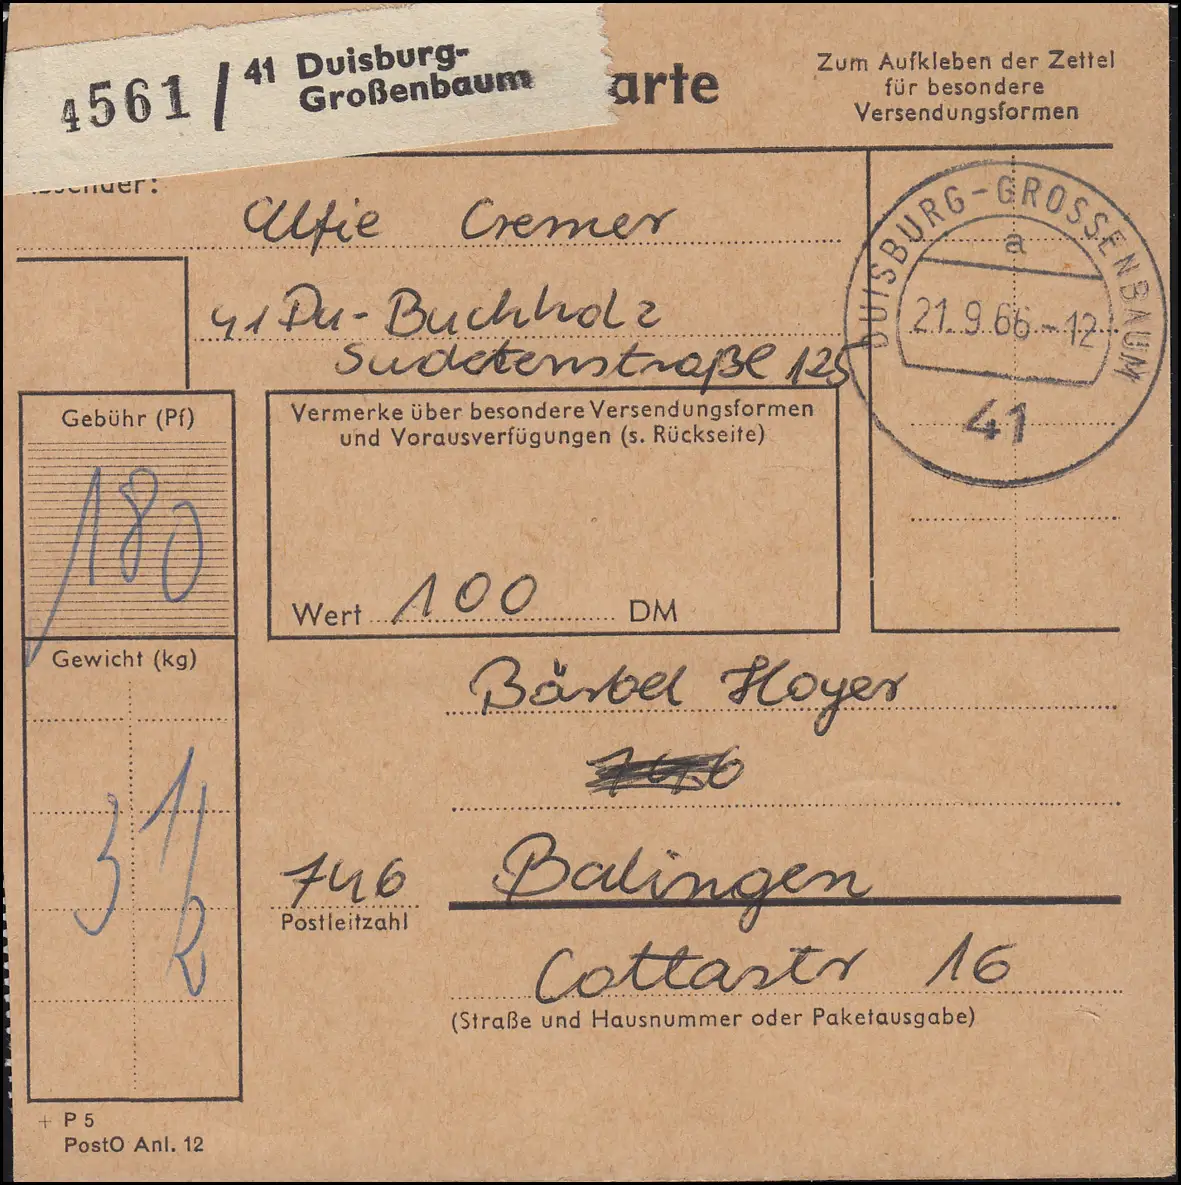 4561 / 41 Duisburg-
Großenbaum
arte
Zum Aufkleben der Zettel
für besondere
Versendungsformen
Absender:
Elfie Cremer
41 Du-Buchholz
Sudetenstraße 125
DUISBURG-GROSSENBAUM
a
21.9.66-12
41
Gebühr (Pf)
180
Vermerke über besondere Versendungsformen
und Vorausverfügungen (s. Rückseite)
Wert 100 DM
Gewicht (kg)
3 1/2
Bärbel Hoyer
746
746 Balingen
Postleitzahl
Cottastr 16
(Straße und Hausnummer oder Paketausgabe)
+ P 5
PostO Anl. 12